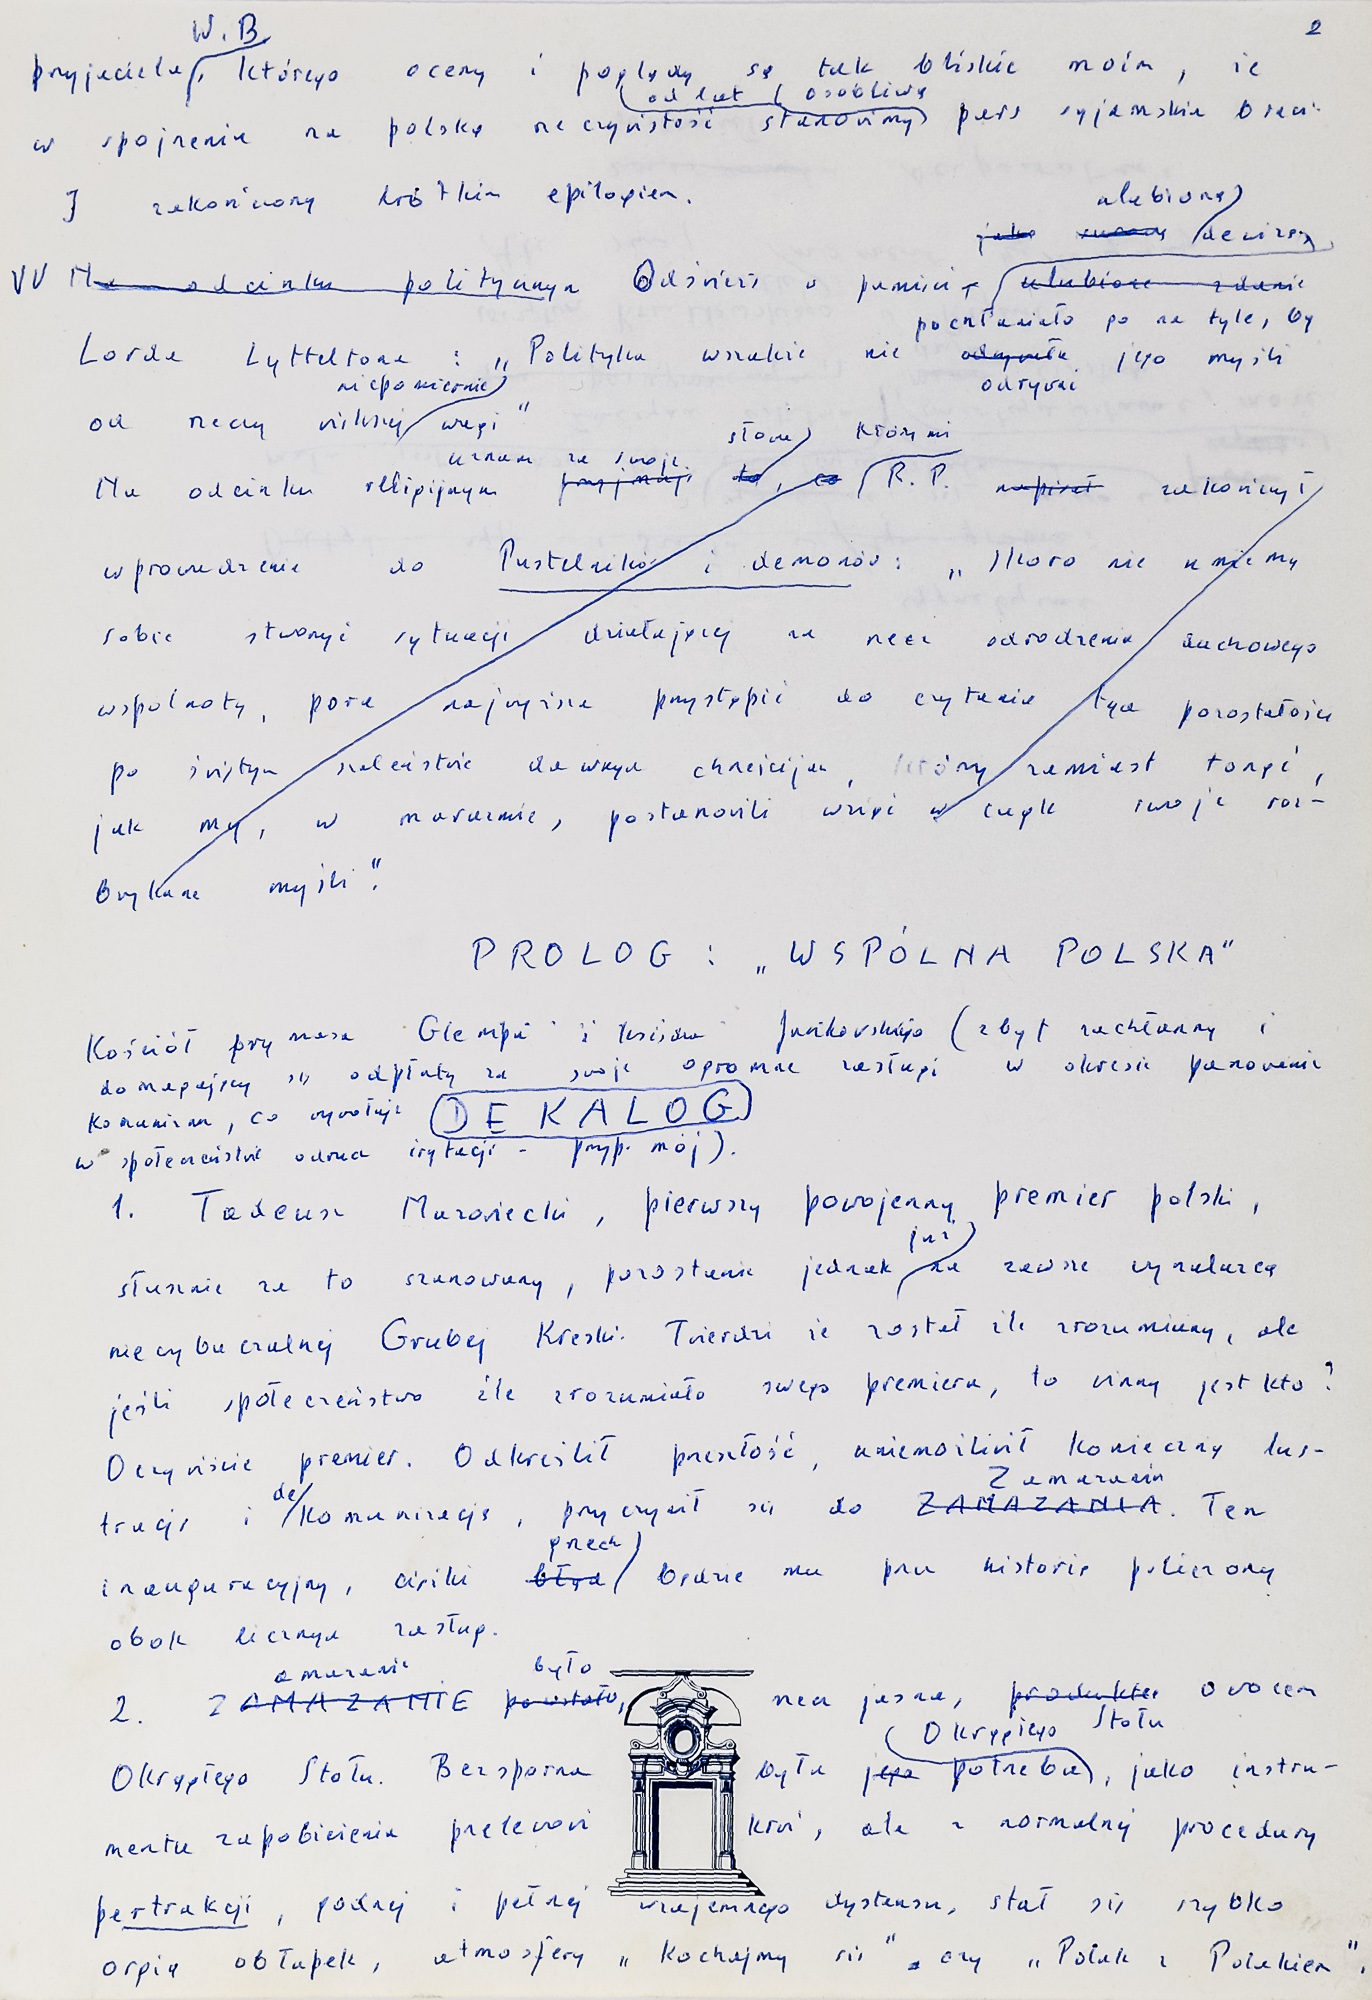 2
W. B.
przyjaciela, którego oceny i poglądy są tak bliskie moim, że
od lat osobliwą
w spojrzeniu na polską rzeczywistość stanowimy parę syjamskich braci.
zakończony krótkim epilogiem.
ulubioną
jako dewizę
VV Na odcinku politycznym Odśwież w pamięci ulubione zdanie
pochłaniało go na tyle, by
Lorda Lytteltona : „Polityka wszakże nie odrywała jego myśli
niepomiernie odrywać
od rzeczy większej wagi"
słowa, którymi
uznaję za swoje
Na odcinku religijnym przyjmuję to, co R. P. napisał zakończył
wprowadzenie do Pustelników i demonów: „Skoro nie umiemy
sobie stworzyć sytuacji działającej na rzecz odrodzenia duchowego
wspólnoty, pora najwyższa przystąpić do czytania tych pozostałości
po świętym szaleństwie dawnych chrześcijan, którzy zamiast tonąć,
jak my, w marazmie, postanowili wziąć w cugle swoje roz-
brykane myśli".
PROLOG : „WSPÓLNA POLSKA"
Kościół prymasa Glempa i księdza Jankowskiego (zbyt zachłanny i
domagający się odpłaty za swoje ogromne zasługi w okresie panowania
komunizmu, co wywołuje
DEKALOG
w społeczeństwie odruch irytacji - przyp. mój).
1. Tadeusz Mazowiecki, pierwszy powojenny premier polski,
już
słusznie za to szanowany, pozostanie jednak na zawsze wynalazcą
niewybaczalnej Grubej Kreski. Twierdzi że został źle zrozumiany, ale
jeśli społeczeństwo źle zrozumiało swego premiera, to winny jest kto?
Oczywiście premier. Odkreślił przeszłość, uniemożliwił konieczną lus-
Zamazania
de
trację i komunizację, przyczynił się do ZAMAZANIA. Ten
grzech
inauguracyjny, ciężki błąd będzie mu przez historię policzony
obok licznych zasług.
amazanie było
2. ZAMAZANIE powstało, rzecz jasna, produktem owocem
Okrągłego Stołu
Okrągłego Stołu. Bezsporna była jego potrzeba, jako instru-
mentu zapobieżenia przelewowi krwi, ale z normalnej procedury
pertrakcji, godnej i pełnej wzajemnego dystansu, stał się szybko
orgią obłapek, atmosfery „Kochajmy się", czy „Polak z Polakiem".